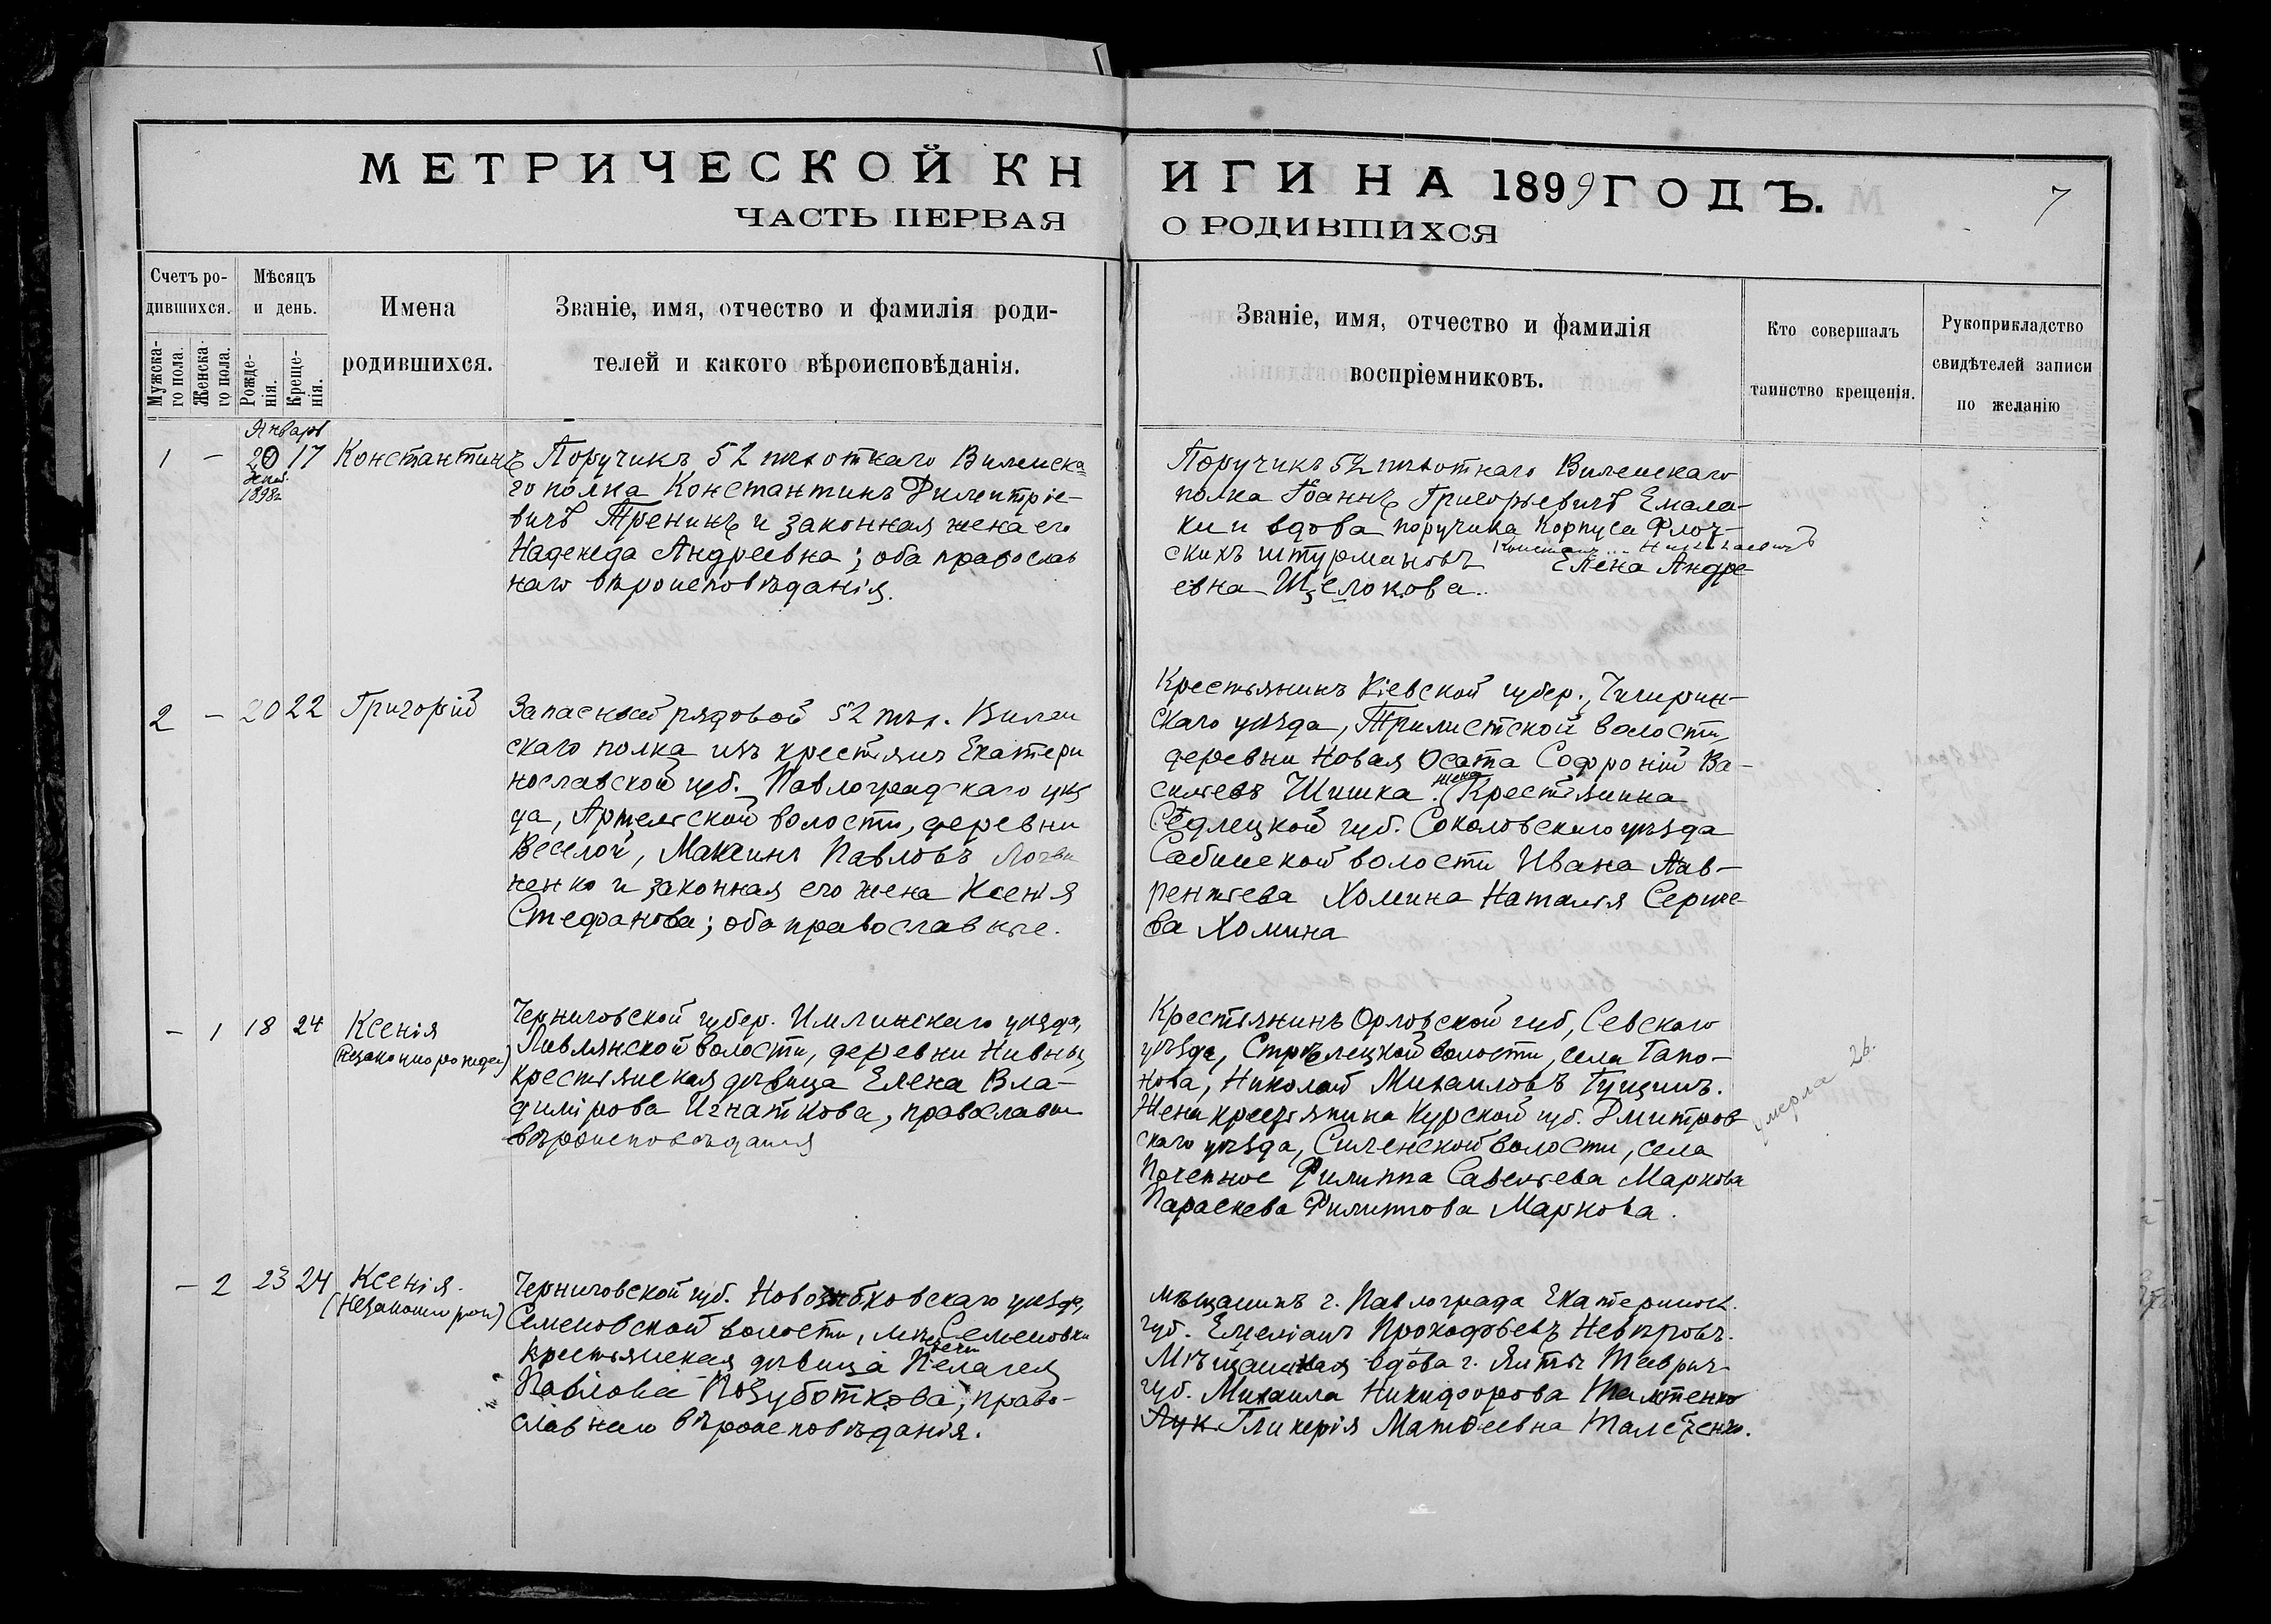 МЕТРИЧЕСКОЙ КНИГИ НА 1899 ГОДЪ.
7
ЧАСТЬ ПЕРВАЯ О РОДИВШИХСЯ
Счетъ ро-
дившихся.
Мужска-
го пола.
Женска-
го пола.
Мѣсяцъ
и день.
Рожде-
нія.
Креще-
нія.
Имена
родившихся.
Званіе, имя, отчество и фамилія роди-
телей и какого вѣроисповѣданія.
Званіе, имя, отчество и фамилія
воспріемниковъ.
Кто совершалъ
таинство крещенія.
Рукоприкладство
свидѣтелей записи
по желанію
Январь
1 – 20 17 Константинъ
1898г
Поручикъ 52 пѣхотнаго Виленска
го полка Константинъ Димитріе-
вичъ Тренинъ и законная жена его
Надежда Андреевна; оба православ
наго вѣроисповѣданія.
Поручикъ 52 пѣхотнаго Виленскаго
полка Іоаннъ Григорьевичъ Емала-
ки и вдова поручика Корпуса Флот-
скихъ штурмановъ Елена Андре
евна Щелокова.
2 – 20 22 Григорій
Запасный рядовой 52 пѣх. Вилен
скаго полка изъ крестьянъ Екатери
нославской губ. Павлоградскаго уѣз
да, Артельской волости, деревни
Веселой, Максимъ Павловъ
ненко и законная его жена Ксенія
Стефанова; оба православные.
Крестьянинъ Кіевской губер., Чигирин-
скаго уѣзда, Трилистской волости
деревни Новая Осата Софроній Ва-
сильевъ Шишка. жена Крестьянина
Сѣдлецкой губ. Соколовскаго уѣзда
Сабинской волости Ивана Лав-
рентьева Хомина Наталія Сергѣе
ва Хомина
– 1 18 24 Ксенія
(незаконнорожден)
Черниговской губер. уѣзда,
волости, деревни Нивны,
крестьянская дѣвица Елена Вла-
димірова Игнаткова, православн
вѣроисповѣданія
Крестьянинъ Орловской губ, Севскаго
уѣзда, Стрѣлецкой волости, села Гапо-
нова, Николай Михаиловъ Гущинъ.
Жена крестьянина Курской губ. Дмитров
скаго уѣзда, волости, села
Филиппа Савельева Маркова
Параскева Филиппова Маркова.
умерла 26.
– 2 23 24 Ксенія.
(Незаконно рож)
Черниговской губ. Новозыбковскаго уѣзда,
Семеновской волости, Семеновки
крестьянская дѣвица Пелагея
Павлова Позуботкова; право-
славнаго вѣроисповѣданія.
Мѣщанинъ г. Павлограда Екатеринос.
губ. Емеліанъ Прокофьевъ Невѣровъ.
Мѣщанская вдова г. Ялты Таврич.
губ. Михаила Никифорова
Гликерія Матѳеевна